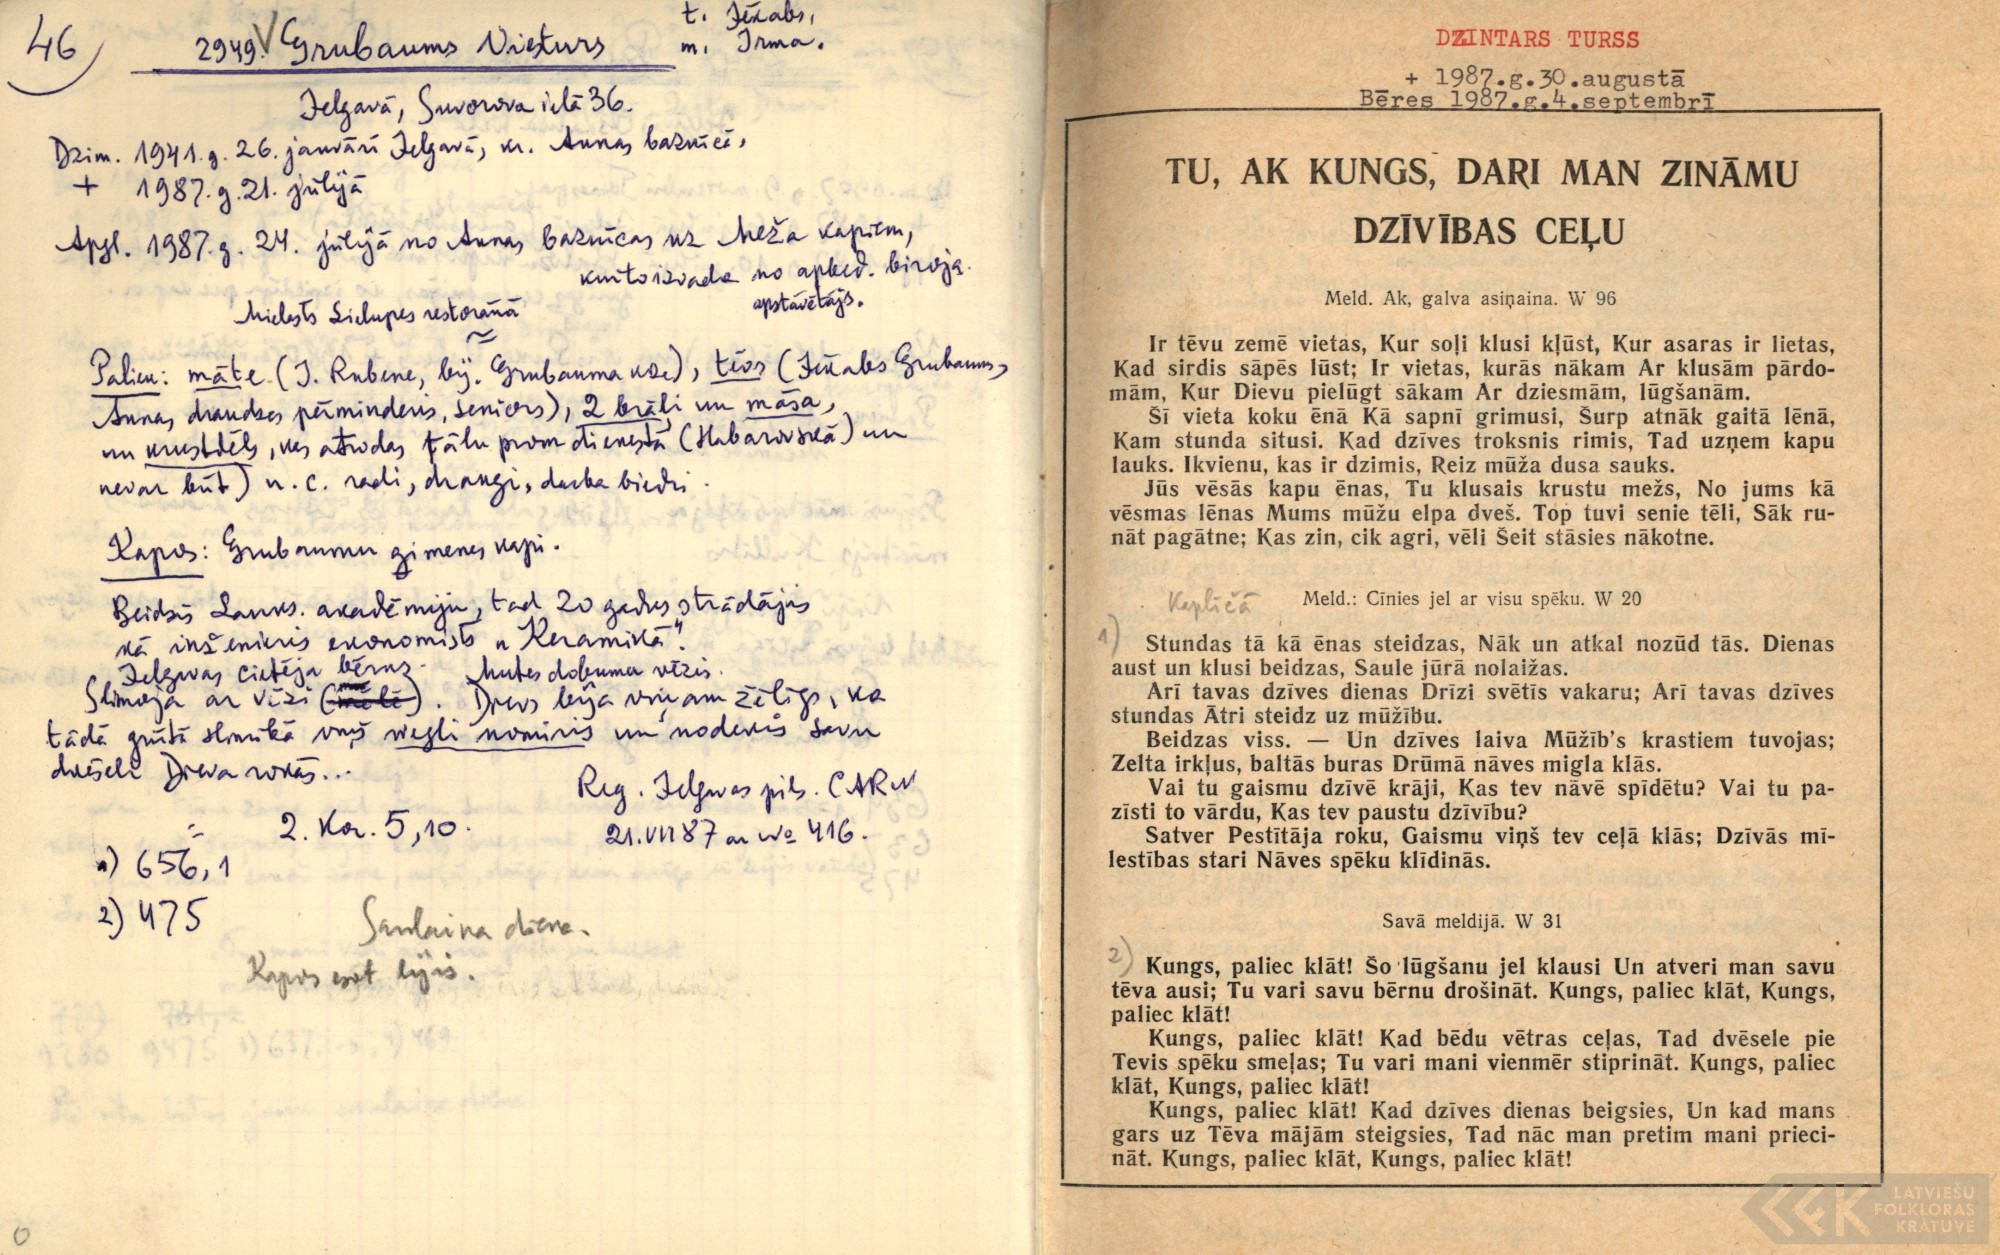 46
2949. V Grubaums Viesturs
t. Jēkabs,
m. Irma.
Jelgavā, Suvorova ielā 36.
Dzim. 1941. g. 26. janvārī Jelgavā, kr. Annas baznīcā,
+ 1987. g. 21. jūlijā
Apgl. 1987. g. 24. jūlijā no Annas baznīcas uz Meža kapiem,
kur to izvada no apbed. biroja
apstāvētājs.
Mielasts Lielupes restorānā
Paliek: māte (I. Rubene, bij. Grubauma kdze), tēvs (Jēkabs Grubaums,
Annas draudzes pērminderis, seniors), 2 brāļi un māsa,
un krustdēls, kas atrodas tālu prom dienestā (Habarovskā) un
nevar būt) u. c. radi, draugi, darba biedri.
Kapos: Grubaumu ģimenes kapi.
Beidzis Lauks. akadēmiju, tad 20 gadus strādājis
kā inženieris ekonomists "Keramikā".
Jelgavas cietēja bērns.
Mutes dobuma vēzis.
Slimoja ar vēzi (mēlē). Dievs bija viņam žēlīgs, ka
tādā grūtā slimībā viņš viegli nomiris un nodevis savu
dvēseli Dieva rokās...
Reg. Jelgavas pils. CARN
2. Kor. 5,10.
21.VII 87 ar No 416.
1) 656,1
2) 475
Saulaina diena.
Kapos esot lijis.
0
DZINTARS TURSS
+ 1987.g.30.augustā
Bēres 1987.g.4.septembrī
TU, AK KUNGS, DARI MAN ZINĀMU
DZĪVĪBAS CEĻU
Meld. Ak, galva asiņaina. W 96
Ir tēvu zemē vietas, Kur soļi klusi kļūst, Kur asaras ir lietas,
Kad sirdis sāpēs lūst; Ir vietas, kurās nākam Ar klusām pārdo-
mām, Kur Dievu pielūgt sākam Ar dziesmām, lūgšanām.
Šī vieta koku ēnā Kā sapnī grimusi, Šurp atnāk gaitā lēnā,
Kam stunda situsi. Kad dzīves troksnis rimis, Tad uzņem kapu
lauks. Ikvienu, kas ir dzimis, Reiz mūža dusa sauks.
Jūs vēsās kapu ēnas, Tu klusais krustu mežs, No jums kā
vēsmas lēnas Mums mūžu elpa dveš. Top tuvi senie tēli, Sāk ru-
nāt pagātne; Kas zin, cik agri, vēli Šeit stāsies nākotne.
Kapličā
Meld.: Cīnies jel ar visu spēku. W 20
1)
Stundas tā kā ēnas steidzas, Nāk un atkal nozūd tās. Dienas
aust un klusi beidzas, Saule jūrā nolaižas.
Arī tavas dzīves dienas Drīzi svētīs vakaru; Arī tavas dzīves
stundas Ātri steidz uz mūžību.
Beidzas viss. — Un dzīves laiva Mūžīb's krastiem tuvojas;
Zelta irkļus, baltās buras Drūmā nāves migla klās.
Vai tu gaismu dzīvē krāji, Kas tev nāvē spīdētu? Vai tu pa-
zīsti to vārdu, Kas tev paustu dzīvību?
Satver Pestītāja roku, Gaismu viņš tev ceļā klās; Dzīvās mī-
lestības stari Nāves spēku klīdinās.
Savā meldijā. W 31
2)
Kungs, paliec klāt! Šo lūgšanu jel klausi Un atveri man savu
tēva ausi; Tu vari savu bērnu drošināt. Kungs, paliec klāt, Kungs,
paliec klāt!
Kungs, paliec klāt! Kad bēdu vētras ceļas, Tad dvēsele pie
Tevis spēku smeļas; Tu vari mani vienmēr stiprināt. Kungs, paliec
klāt, Kungs, paliec klāt!
Kungs, paliec klāt! Kad dzīves dienas beigsies, Un kad mans
gars uz Tēva mājām steigsies, Tad nāc man pretim mani prieci-
nāt. Kungs, paliec klāt, Kungs, paliec klāt!
LATVIEŠU
FOLKLORAS
KRĀTUVE